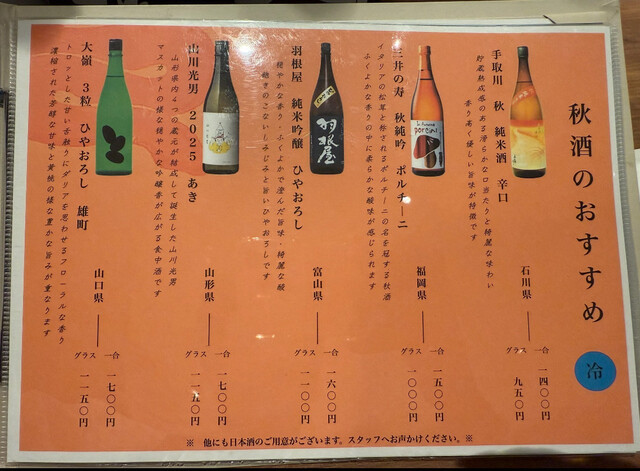 秋酒のおすすめ
冷
手取川 秋 純米酒 辛口
貯蔵熟成感のある滑らかな口当たりと綺麗な味わい
香り高く優しい旨味が特徴です
石川県
一合 一四〇〇円
グラス 九五〇円
三井の寿 秋純吟 ポルチーニ
イタリアの松茸と称されるポルチーニの名を冠する秋酒
ふくよかな香りの中に柔らかな酸味が感じられます
porcini
福岡県
一合 一五〇〇円
グラス 一〇〇〇円
羽根屋 純米吟醸 ひやおろし
穏やかな香り・ふくよかで澄んだ旨味・綺麗な酸
飽きのこないしみじみと旨いひやおろしです
羽根屋
富山県
一合 一六〇〇円
グラス 一一〇〇円
山川光男 2025 あき
山形県内4つの蔵元が結成して誕生した山川光男
マスカットの様な穏やかな吟醸香が広がる食中酒です
山形県
一合 一七〇〇円
グラス 一一五〇円
大嶺 3粒 ひやおろし 雄町
トロッとした甘い舌触りにダリアを思わせるフローラルな香り
濃縮された芳醇な甘味と黄桃の様な豊かな旨みが重なります
山口県
一合 一七〇〇円
グラス 一一五〇円
※ 他にも日本酒のご用意がございます。スタッフへお声かけください。※